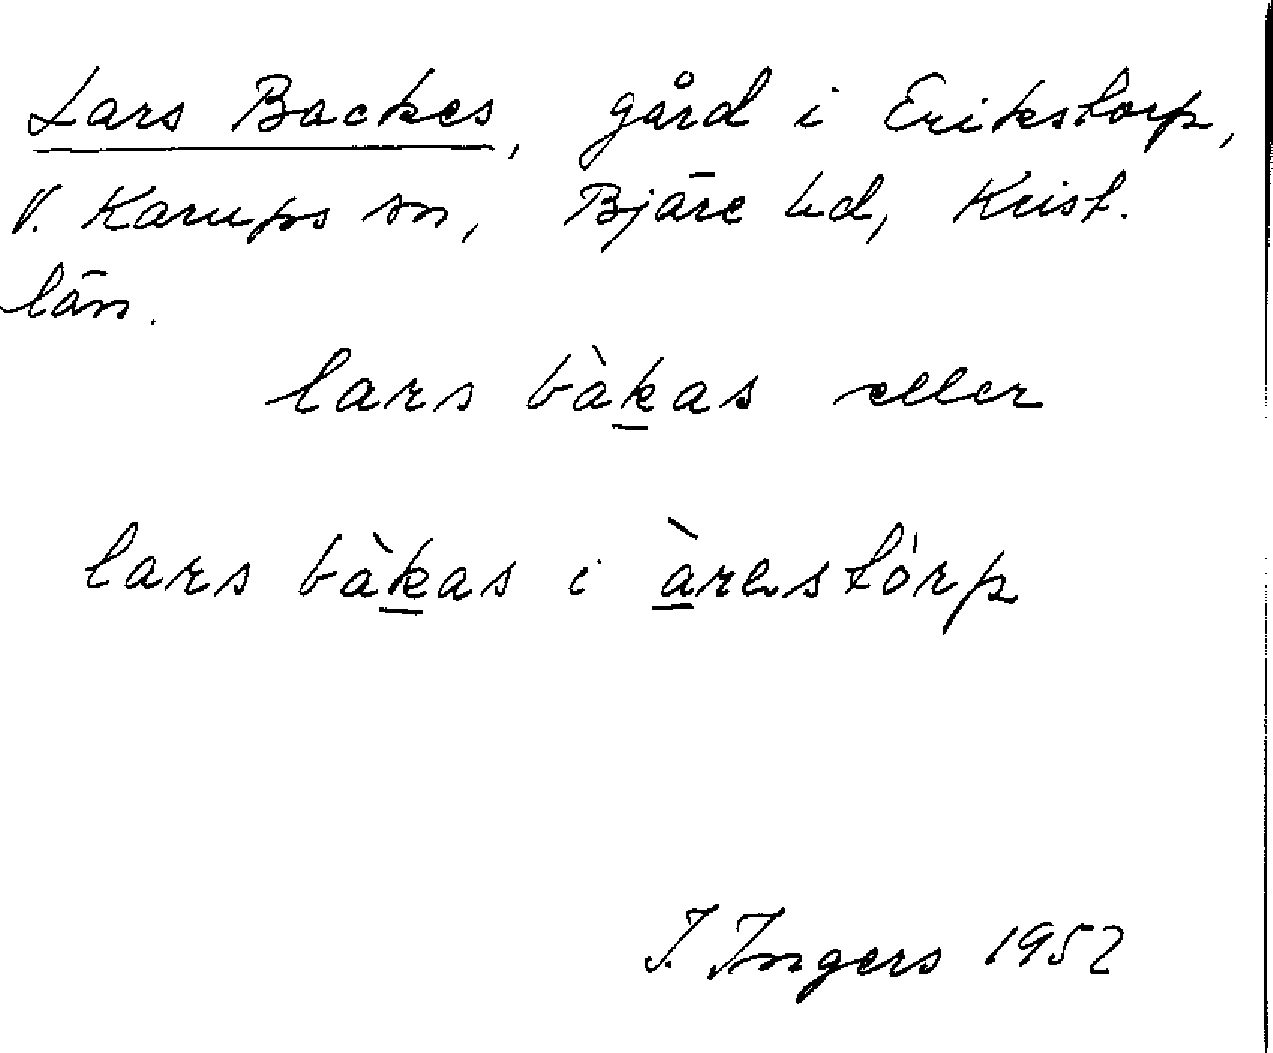 Lars Backes, gård i Erikstorp,
V. Karups sn, Bjäre hd, Krist.
län.
lars bàkas eller
lars bàkas i àrestórp
I. Ingers 1952